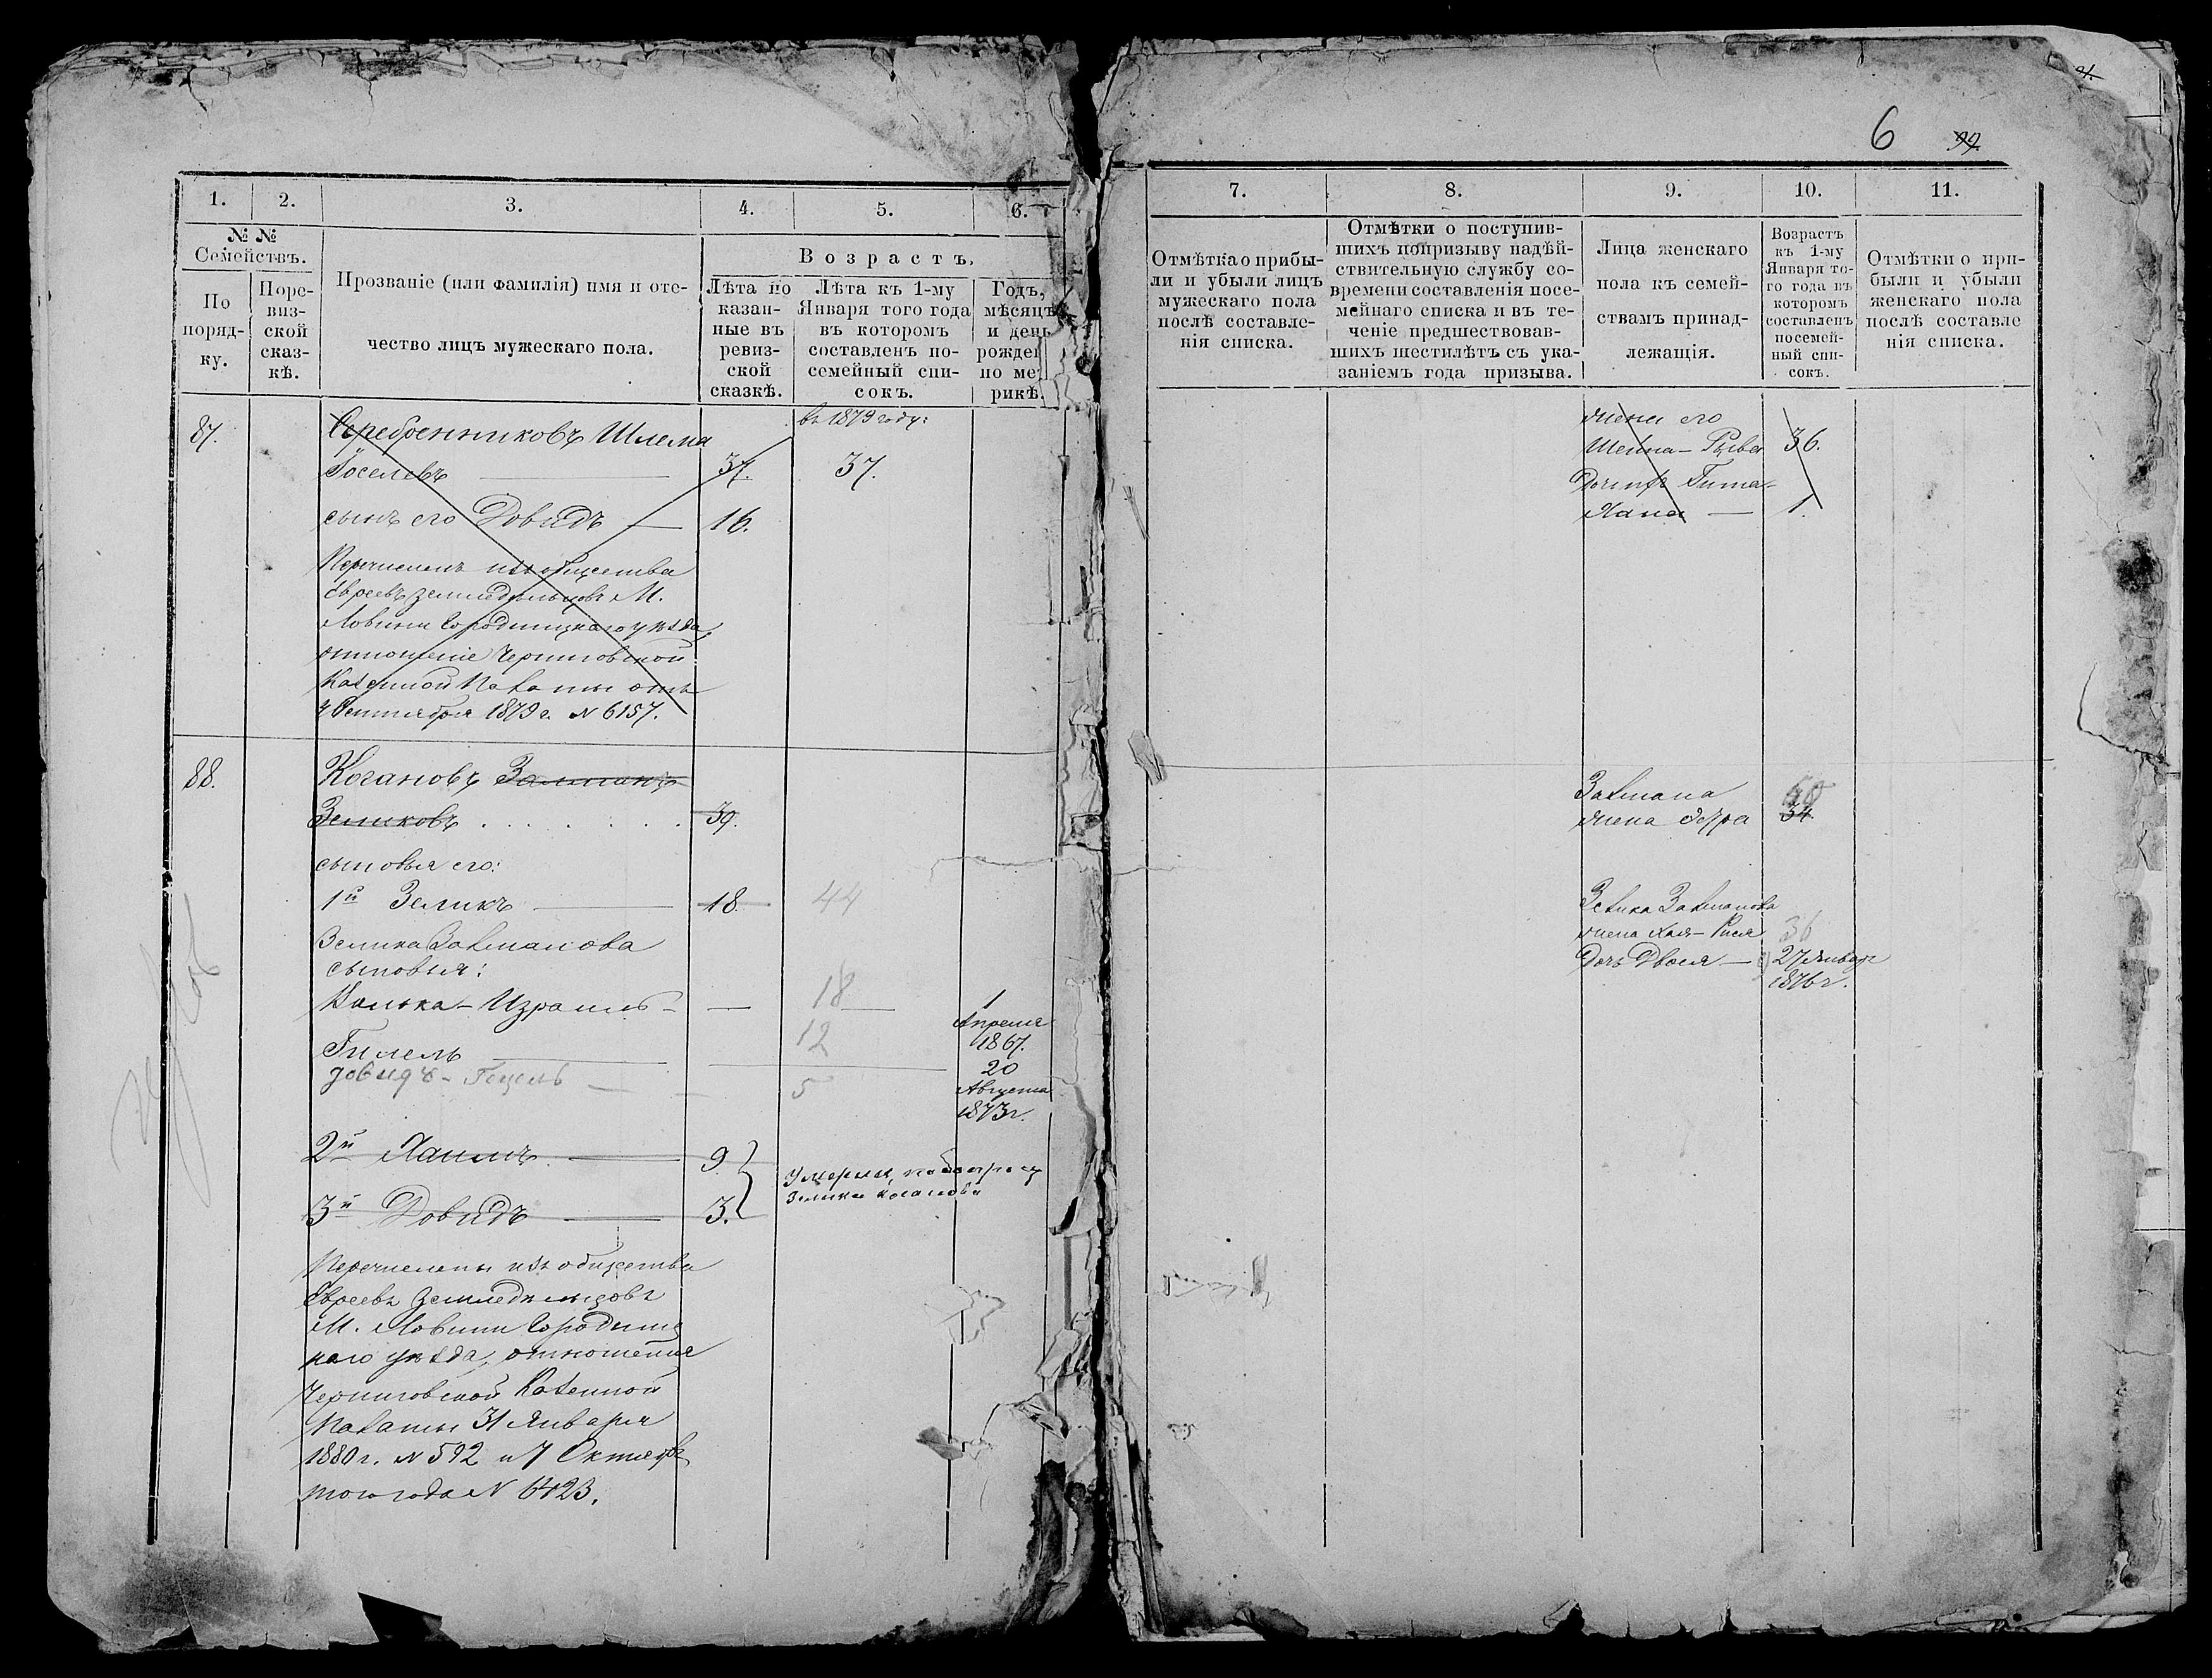 6 99.
1. 2. 3. 4. 5. 6.
№ №
Семействъ.
По
поряд-
ку.
Поре-
виз-
ской
сказ-
кѣ.
Прозваніе (или фамилія) имя и оте-
чество лицъ мужескаго пола.
Возрастъ,
Лѣта по
казан-
ные въ
ревиз-
ской
сказкѣ.
Лѣта къ 1-му
Января того года
въ которомъ
составленъ по-
семейный спи-
сокъ.
Годъ,
мѣсяцъ
и день
рожден
по ме
рикѣ.
87.
Серебренниковъ Шлема
въ 1879 году:
Іоселевъ 37. 37.
сынъ его Довидъ — 16.
Перечисленъ изъ общества
Евреевъ земледѣльцовъ М.
Ловини Городницкаго уѣзда,
отношеніе Черниговской
Казенной Палаты отъ
4 Сентября 1879 г. N 6157.
88.
Когановъ Залманъ
Зеликовъ . . . . . . . 39.
сыновья его:
1й Зеликъ — 18. 44
Зелика Залманова
сыновья:
Калька-Израиль - — 18 — 1
Апреля
1867.
Гилель — 12
20
Августа
1873 г.
Довидъ - Гецель — 5
2й Хаимъ — 9.
3й Довидъ — 3.
Умерли, по вопросу
Зелика Коганова
Перечислены изъ общества
Евреевъ Земледѣльцовъ
М. Ловини Городниц
каго уѣзда, отношенія
Черниговской Казенной
Палаты 31 Января
1880 г. N 592 и 7 Октября
того года N 6423.
7. 8. 9. 10. 11.
Отмѣтка о прибы-
ли и убыли лицъ
мужескаго пола
послѣ составле-
нія списка.
Отмѣтки о поступив-
шихъ попризыву надѣй-
ствительную службу со-
времени составленія посе-
мейнаго списка и въ те-
ченіе предшествовав-
шихъ шестилѣтъ съ ука-
заніемъ года призыва.
Лица женскаго
пола къ семей-
ствамъ принад-
лежащія.
Возрастъ
къ 1-му
Января то-
го года въ
которомъ
составленъ
посемей-
ный спи-
сокъ.
Отмѣтки о при-
были и убыли
женскаго пола
послѣ составле
нія списка.
жена его
Шейна-Рывка 36.
Дочь Гита-
Хана — 1.
Залмана
жена Эстра 34
Зелика Залманова
жена Хая-Рися 36
Дочь Двося — 27 Января
1876 г.